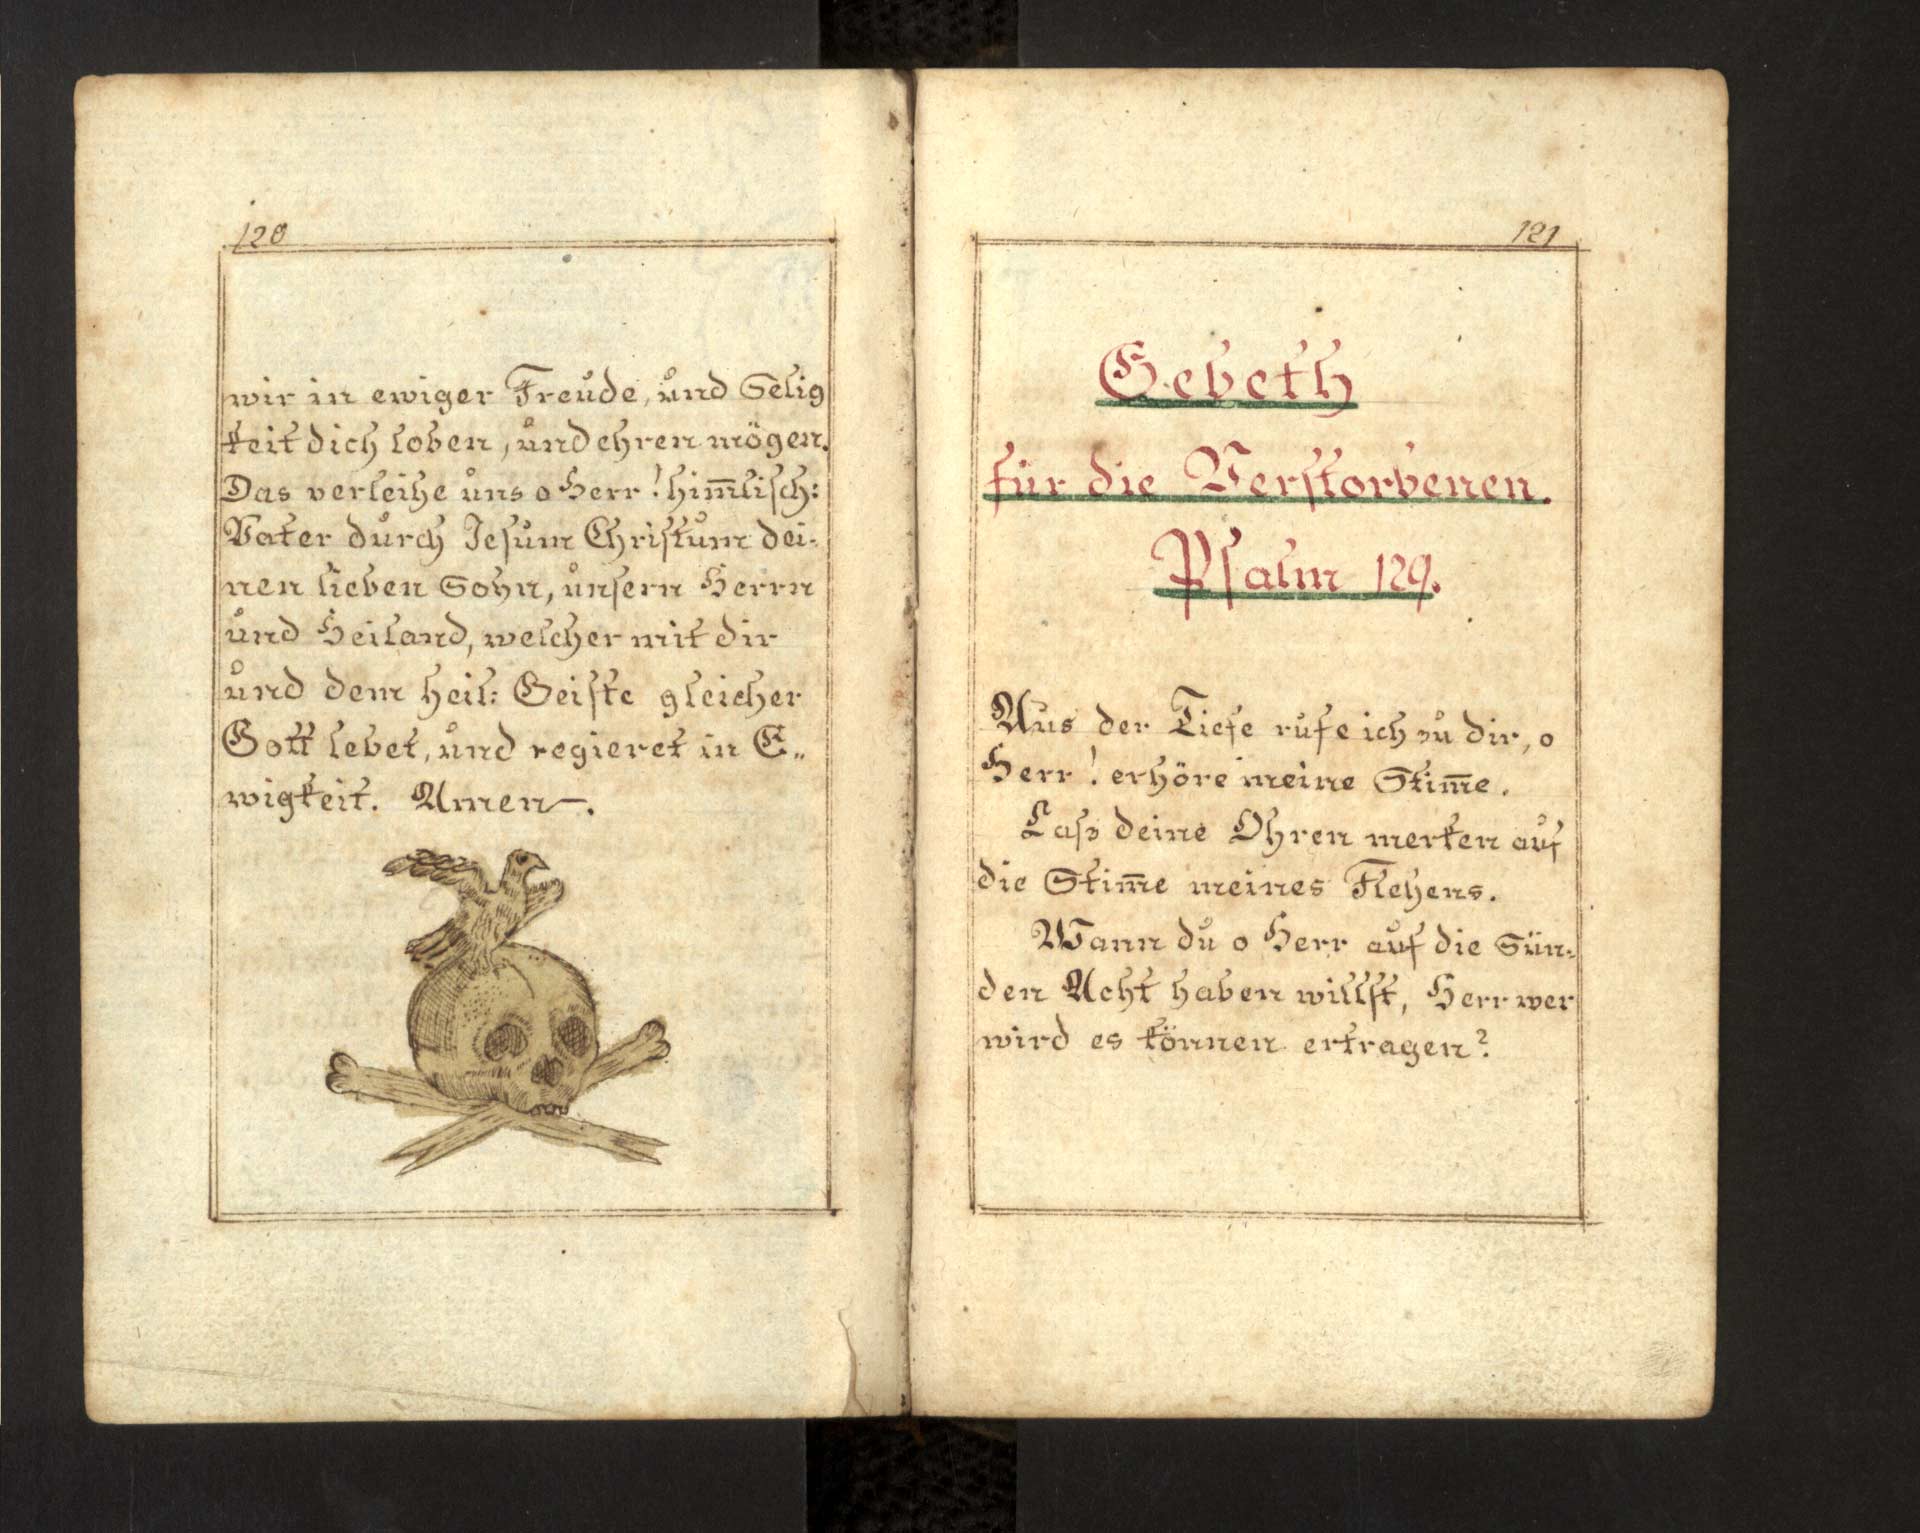 120
wir in ewiger Freude, und Selig
keit dich loben, und ehren mögen.
Das verleihe uns o Herr! him̅lisch:
Vater durch Jesum Christum dei-
nen lieben Sohn, unsern Herrn
und Heiland, welcher mit dir
und dem heil: Geiste gleicher
Gott lebet, und regieret in E„
wigkeit. Amen—.
121
Gebeth
für die Verstorbenen.
Psalm 129.
Aus der Tiefe rufe ich zu dir, o
Herr! erhöre meine Stim̅e.
Lass deine Ohren merken auf
die Stim̅e meines Flehens.
Wann du o Herr auf die Sün-
den Acht haben willst, Herr wer
wird es können ertragen?